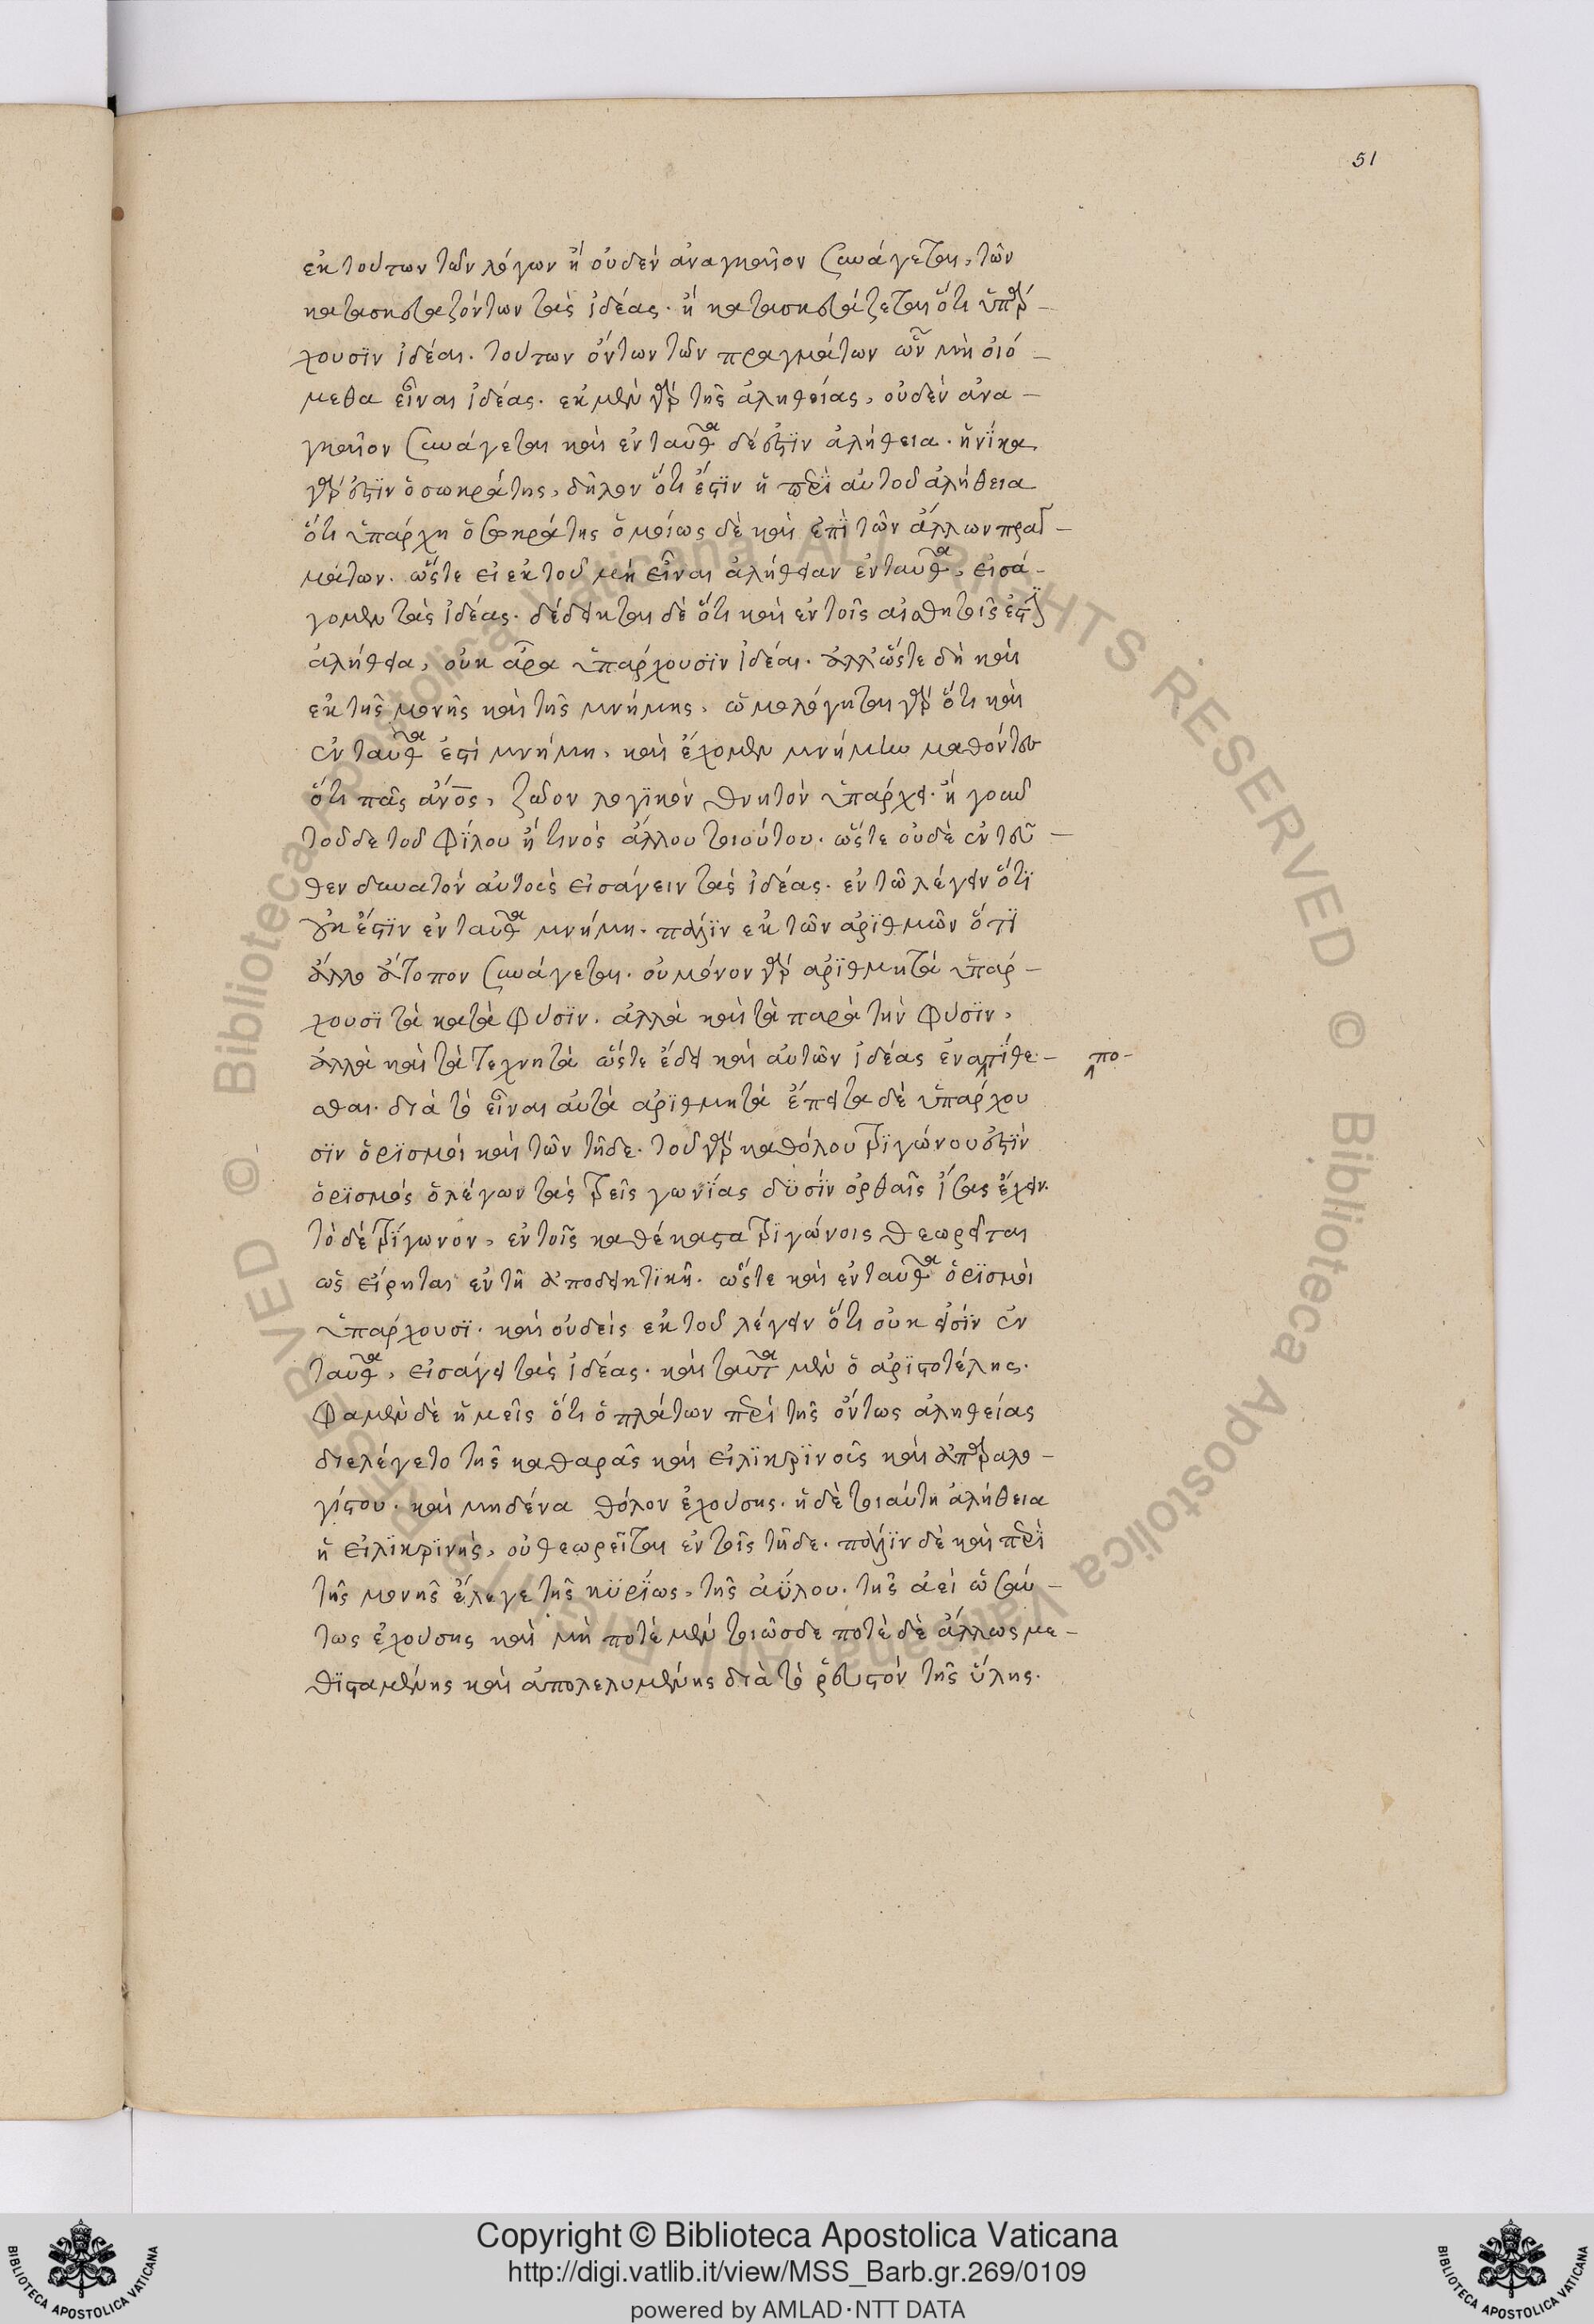 51
ἐκ τούτων τῶν λόγων ἢ οὐδὲν ἀναγκαῖον συνάγεται, τῶν
κατασκευαζόντων τὰς ἰδέας. ἢ κατασκευάζεται ὅτι ὑπάρ-
χουσϊν ἰδέαι. τούτων ὄντων τῶν πραγμάτων ὧν μὴ οἰό-
μεθα εἶναι ἰδέας. ἐκ μὲν γὰρ τῆς ἀληθείας, οὐδὲν ἀνα-
γκαῖον συνάγεται καὶ ἐνταῦθα δέ ἐστϊν ἀλήθεια. ἡνΐκα
γάρ ἐστϊν ὁ σωκράτης, δῆλον ὅτι ἔστϊν ἡ περῒ αὐτοῦ ἀλήθεια
ὅτι ὑπάρχη ὁ σωκράτης ὁμοίως δὲ καὶ ἐπῒ τῶν ἄλλων πραγ-
μάτων. ὥστε εἰ ἐκ τοῦ μὴ εἶναι ἀλήθειαν ἐνταῦθα, εἰσά-
γομεν τὰς ἰδέας. δέδεικται δὲ ὅτι καὶ ἐν τοῖς αἰσθητοῖς ἐστὶν
ἀλήθεια, οὐκ ἄρα ὑπάρχουσϊν ἰδέαι. ἀλλ' ὥστε δὴ καὶ
ἐκ τῆς μονῆς καὶ τῆς μνήμης. ὡμολόγηται γὰρ ὅτι καὶ
ἐνταῦθα ἐστὶ μνήμη, καὶ ἔχομεν μνήμην μαθόντες
ὅτι πᾶς ἄνος, ζῶον λογϊκὸν θνητὸν ὑπάρχει. ἢ γοῦν
τοῦδε τοῦ φΐλου ἤ τινος ἄλλου τοιούτου. ὥστε οὐδὲ ἐντεῦ-
θεν δυνατὸν αὐτοὺς εἰσάγειν τὰς ἰδέας. ἐν τῷ λέγειν ὅτϊ
οὐκ ἔστϊν ἐνταῦθα μνήμη. πάλϊν ἐκ τῶν ἀρϊθμῶν ὅτϊ
ἄλλο ἄτοπον συνάγεται. οὐ μόνον γὰρ ἀρϊθμητὰ ὑπάρ-
χουσϊ τὰ κατὰ φύσϊν. ἀλλὰ καὶ τὰ παρὰ τὴν φύσϊν,
ἀλλὰ καὶ τὰ τεχνητὰ ὥστε ἔδει καὶ αὐτῶν ἰδέας ἐναπτΐθε-
πο-
σθαι. διὰ τὸ εἶναι αὐτὰ ἀρϊθμητὰ ἔπειτα δὲ ὑπάρχου
σϊν ὁρϊσμοὶ καὶ τῶν τῆδε. τοῦ γὰρ καθόλου τρϊγώνου ἐστϊν
ὁρϊσμὸς ὁ λέγων τὰς τρεῖς γωνΐας δϋσὶν ὀρθαῖς ἴσας ἔχειν.
τὸ δὲ τρΐγωνον, ἐν τοῖς καθέκαστα τρϊγώνοις θεωρεῖται
ὡς εἴρηται ἐν τῇ ἀποδεικτϊκῇ. ὥστε καὶ ἐνταῦθα ὁρϊσμοὶ
ὑπάρχουσϊ. καὶ οὐδεὶς ἐκ τοῦ λέγειν ὅτι οὐκ εἰσὶν ἐν
ταῦθα, εἰσάγει τὰς ἰδέας. καὶ ταῦτα μὲν ὁ ἀρϊστοτέλης.
φαμὲν δὲ ἡμεῖς ὅτι ὁ πλάτων περὶ τῆς ὄντως ἀληθείας
διελέγετο τῆς καθαρᾶς καὶ εἰλϊκρϊνοῦς καὶ ἀπαραλο-
γίστου. καὶ μηδένα θόλον ἐχούσης. ἡ δὲ τοιαύτη ἀλήθεια
ἡ εἰλϊκρϊνὴς, οὐ θεωρεῖται ἐν τοῖς τῆδε. πάλϊν δὲ καὶ περῒ
τῆς μονῆς ἔλεγε τῆς κϋρΐως, τῆς ἀΰλου. τῆς ἀεὶ ὡσαύ-
τως ἐχούσης καὶ μὴ ποτὲ μὲν τοιῶσδε ποτὲ δὲ ἄλλως με-
θϊσταμένης καὶ ἀπολελυμένης διὰ τὸ ῥευστὸν τῆς ὕλης.
Copyright © Biblioteca Apostolica Vaticana
http://digi.vatlib.it/view/MSS_Barb.gr.269/0109
powered by AMLAD·NTT DATA